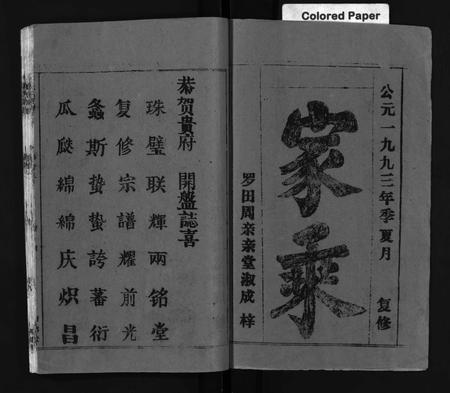 Colored Paper
公元一九九三年季夏月 复修
家乘
罗田周亲亲堂淑成 梓
恭贺貴府 開盤誌喜
珠璧联輝兩銘堂
复修宗譜耀前光
螽斯蛰蛰誇蕃衍
瓜瓞綿綿庆炽昌